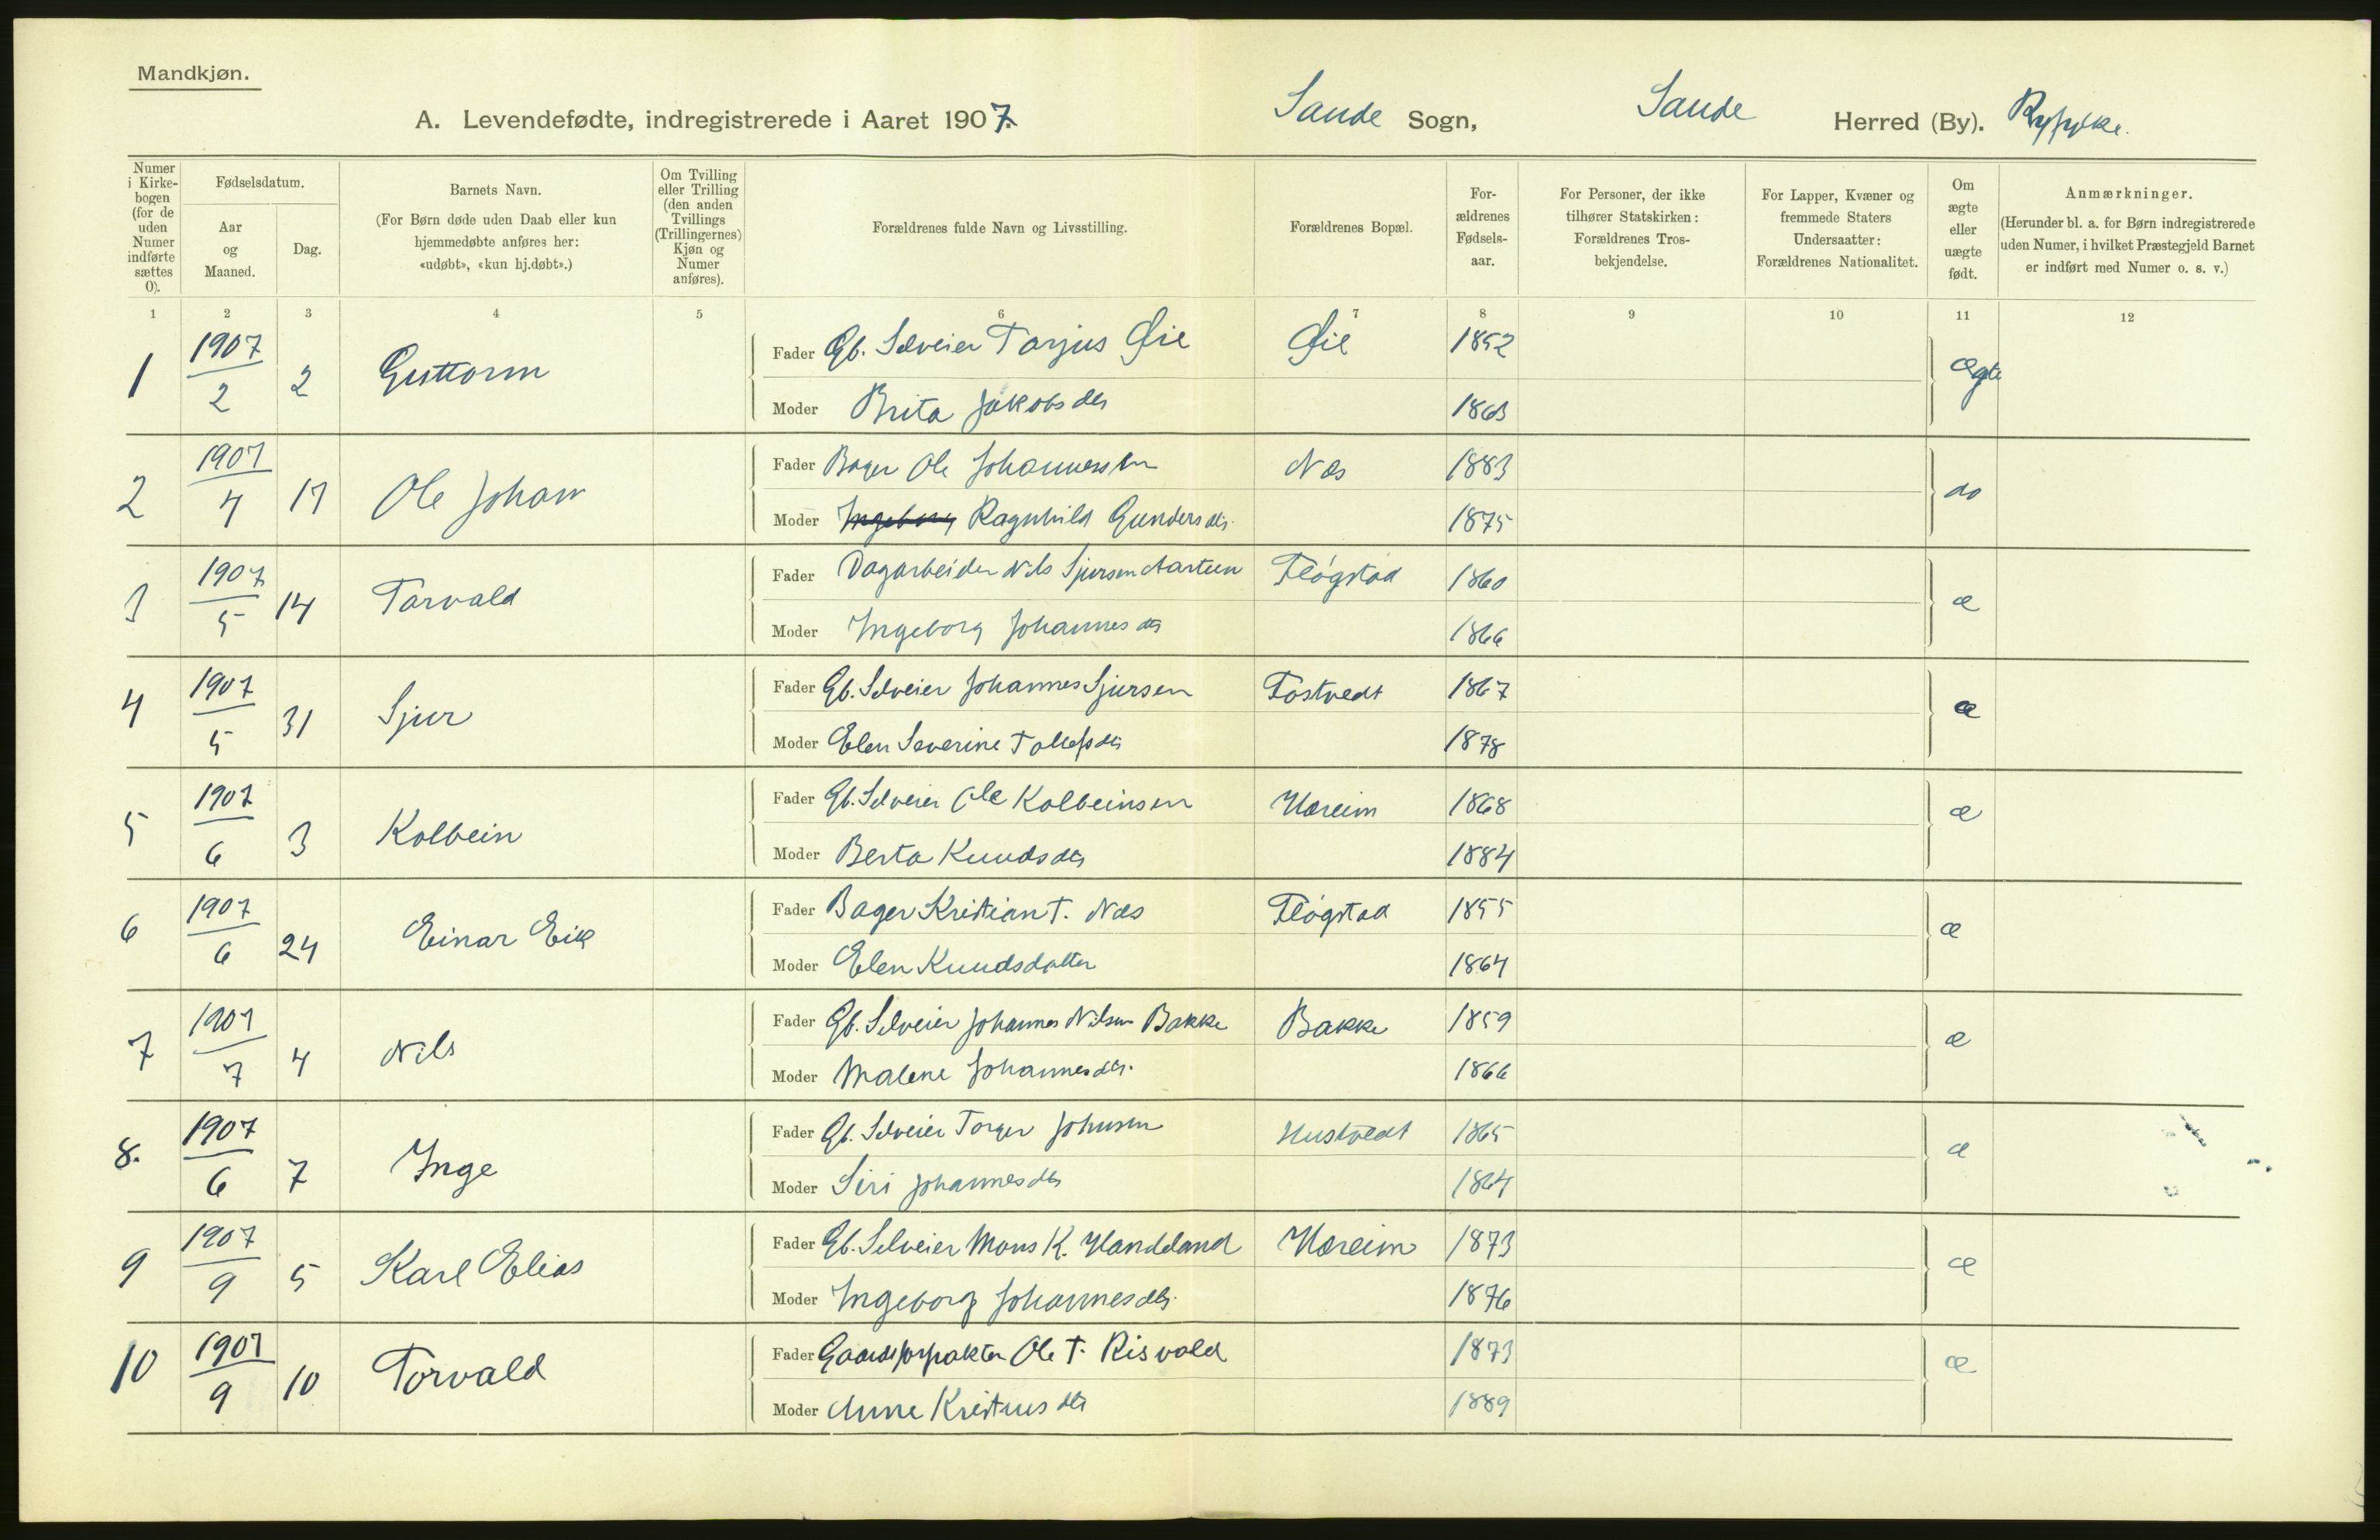 Mandkjøn.
A. Levendefødte, indregistrerede i Aaret 1907. Sande Sogn, Sande Herred (By). Ryfylke.
Numer i Kirkebogen (for de uden Numer indførte sættes 0).
Fødselsdatum.
Aar og Maaned.
Dag.
Barnets Navn.
(For Børn døde uden Daab eller kun hjemmedøbte anføres her: «udøbt», «kun hj.døbt».)
Om Tvilling eller Trilling (den anden Tvillings (Trillingernes) Kjøn og Numer anføres).
Forældrenes fulde Navn og Livsstilling.
Forældrenes Bopæl.
Forældrenes Fødselsaar.
For Personer, der ikke tilhører Statskirken: Forældrenes Trosbekjendelse.
For Lapper, Kvæner og fremmede Staters Undersaatter: Forældrenes Nationalitet.
Om ægte eller uægte født.
Anmærkninger.
(Herunder bl. a. for Børn indregistrerede uden Numer, i hvilket Præstegjeld Barnet er indført med Numer o. s. v.)
1 2 3 4 5 6 7 8 9 10 11 12
1 1907/2 2 Guttorm Fader Gb. Selveier Tarjus Øie Øie 1852 Ægte
Moder Brita Jakobsdtr 1863
2 1907/4 17 Ole Johan Fader Bager Ole Johannessen Næs 1883 do
Moder Ingeborg Ragnhild Gundersdtr. 1875
3 1907/5 14 Torvald Fader Dagarbeider Nils Sjursen Fløgstad 1860 æ
Moder Ingeborg Johannesdtr 1866
4 1907/5 31 Sjur Fader Gb. Selveier Johannes Sjursen Tostvedt 1867 æ
Moder Elen Severine Tollefsdtr 1878
5 1907/6 3 Kolbein Fader Gb. Selveier Ole Kolbeinsen Hareim 1868 æ
Moder Berta Knudsdtr 1884
6 1907/6 24 Einar Eik Fader Bager Kristian T. Næs Fløgstad 1855 æ
Moder Elen Knudsdatter 1864
7 1907/7 4 Nils Fader Gb. Selveier Johannes Nilsen Bakke Bakke 1859 æ
Moder Malene Johannesdtr. 1866
8. 1907/6 7 Inge Fader Gb. Selveier Torger Johnsen Hustvedt 1865 æ
Moder Siri Johannesdtr 1864
9 1907/9 5 Karl Elias Fader Gb. Selveier Mons K. Handeland Hareim 1873 æ
Moder Ingeborg Johannesdtr. 1876
10 1907/9 10 Torvald Fader Gaardsforpakter Ole T. Risvold 1873 æ
Moder Anne Kristensdtr 1889